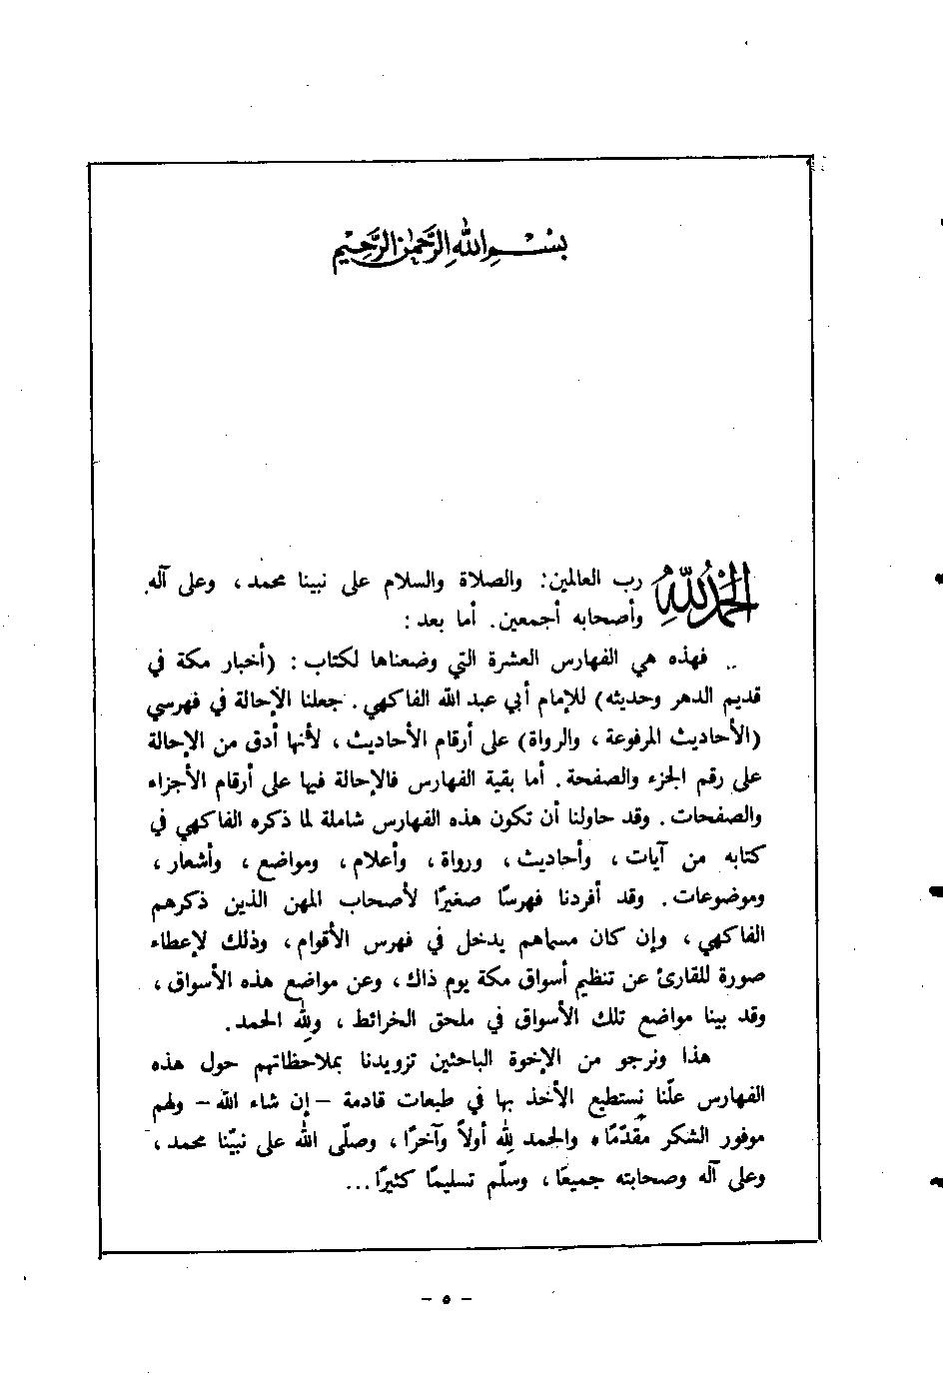 بِسْمِ اللهِ الرَّحْمٰنِ الرَّحِيْمِ
الحَمْدُ لِلّٰهِ رب العالمين: والصلاة والسلام على نبينا محمد ، وعلى آله
وأصحابه أجمعين. أما بعد :
.. فهذه هي الفهارس العشرة التي وضعناها لكتاب : (أخبار مكة في
قديم الدهر وحديثه) للإمام أبي عبد الله الفاكهي . جعلنا الإحالة في فهرسي
(الأحاديث المرفوعة ، والرواة) على أرقام الأحاديث ، لأنها أدق من الإحالة
على رقم الجزء والصفحة . أما بقية الفهارس فالإحالة فيها على أرقام الأجزاء
والصفحات . وقد حاولنا أن تكون هذه الفهارس شاملة لما ذكره الفاكهي في
كتابه من آيات ، وأحاديث ، ورواة ، وأعلام ، ومواضع ، وأشعار ،
وموضوعات . وقد أفردنا فهرسًا صغيرًا لأصحاب المهن الذين ذكرهم
الفاكهي ، وإن كان مسماهم يدخل في فهرس الأقوام ، وذلك لإعطاء
صورة للقارئ عن تنظيم أسواق مكة يوم ذاك ، وعن مواضع هذه الأسواق ،
وقد بينا مواضع تلك الأسواق في ملحق الخرائط ، ولله الحمد.
هذا ونرجو من الإخوة الباحثين تزويدنا بملاحظاتهم حول هذه
الفهارس علّنا نستطيع الأخذ بها في طبعات قادمة – إن شاء الله – ولهم
موفور الشكر مقدّمًا ، والحمد لله أولاً وآخرًا ، وصلّى الله على نبيّنا محمد ،
وعلى آله وصحابته جميعًا ، وسلّم تسليمًا كثيرًا ...
– ٥ –